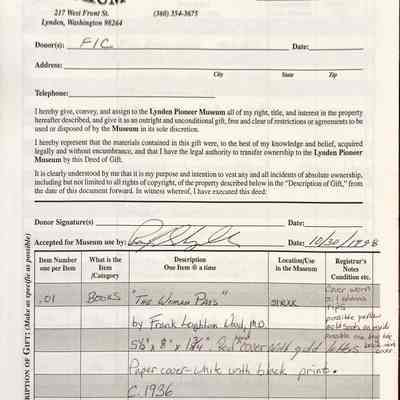 UM
217 West Front St.
Lynden, Washington 98264
(360) 354-3675
Donor(s): FIC Date:
Address:
City State Zip
Telephone:
I hereby give, convey, and assign to the Lynden Pioneer Museum all of my right, title, and interest in the property
hereafter described, and give it as an outright and unconditional gift, free and clear of restrictions or agreements to be
used or disposed of by the Museum in its sole discretion.
I hereby represent that the materials contained in this gift were, to the best of my knowledge and belief, acquired
legally and without encumbrance, and that I have the legal authority to transfer ownership to the Lynden Pioneer
Museum by this Deed of Gift.
It is clearly understood by me that it is my purpose and intention to vest any and all incidents of absolute ownership,
including but not limited to all rights of copyright, of the property described below in the "Description of Gift," from
the date of this document forward. In witness whereof, I have executed this deed:
Donor Signature(s) Date:
Accepted for Museum use by: Date: 10/30/1998
RIPTION OF GIFT: (Make as specific as possible)
Item Number
one per Item
What is the
Item
/Category
Description
One Item @ a time
Location/Use
in the Museum
Registrar's
Notes
Condition etc.
.01 Books "The Woman Pays"
by Frank Loughton Wood, M.D.
5½" x 8" x 1¾" Red hard cover with gold letters
Paper cover - white with black print.
C. 1936
Cover worn
rips
possible